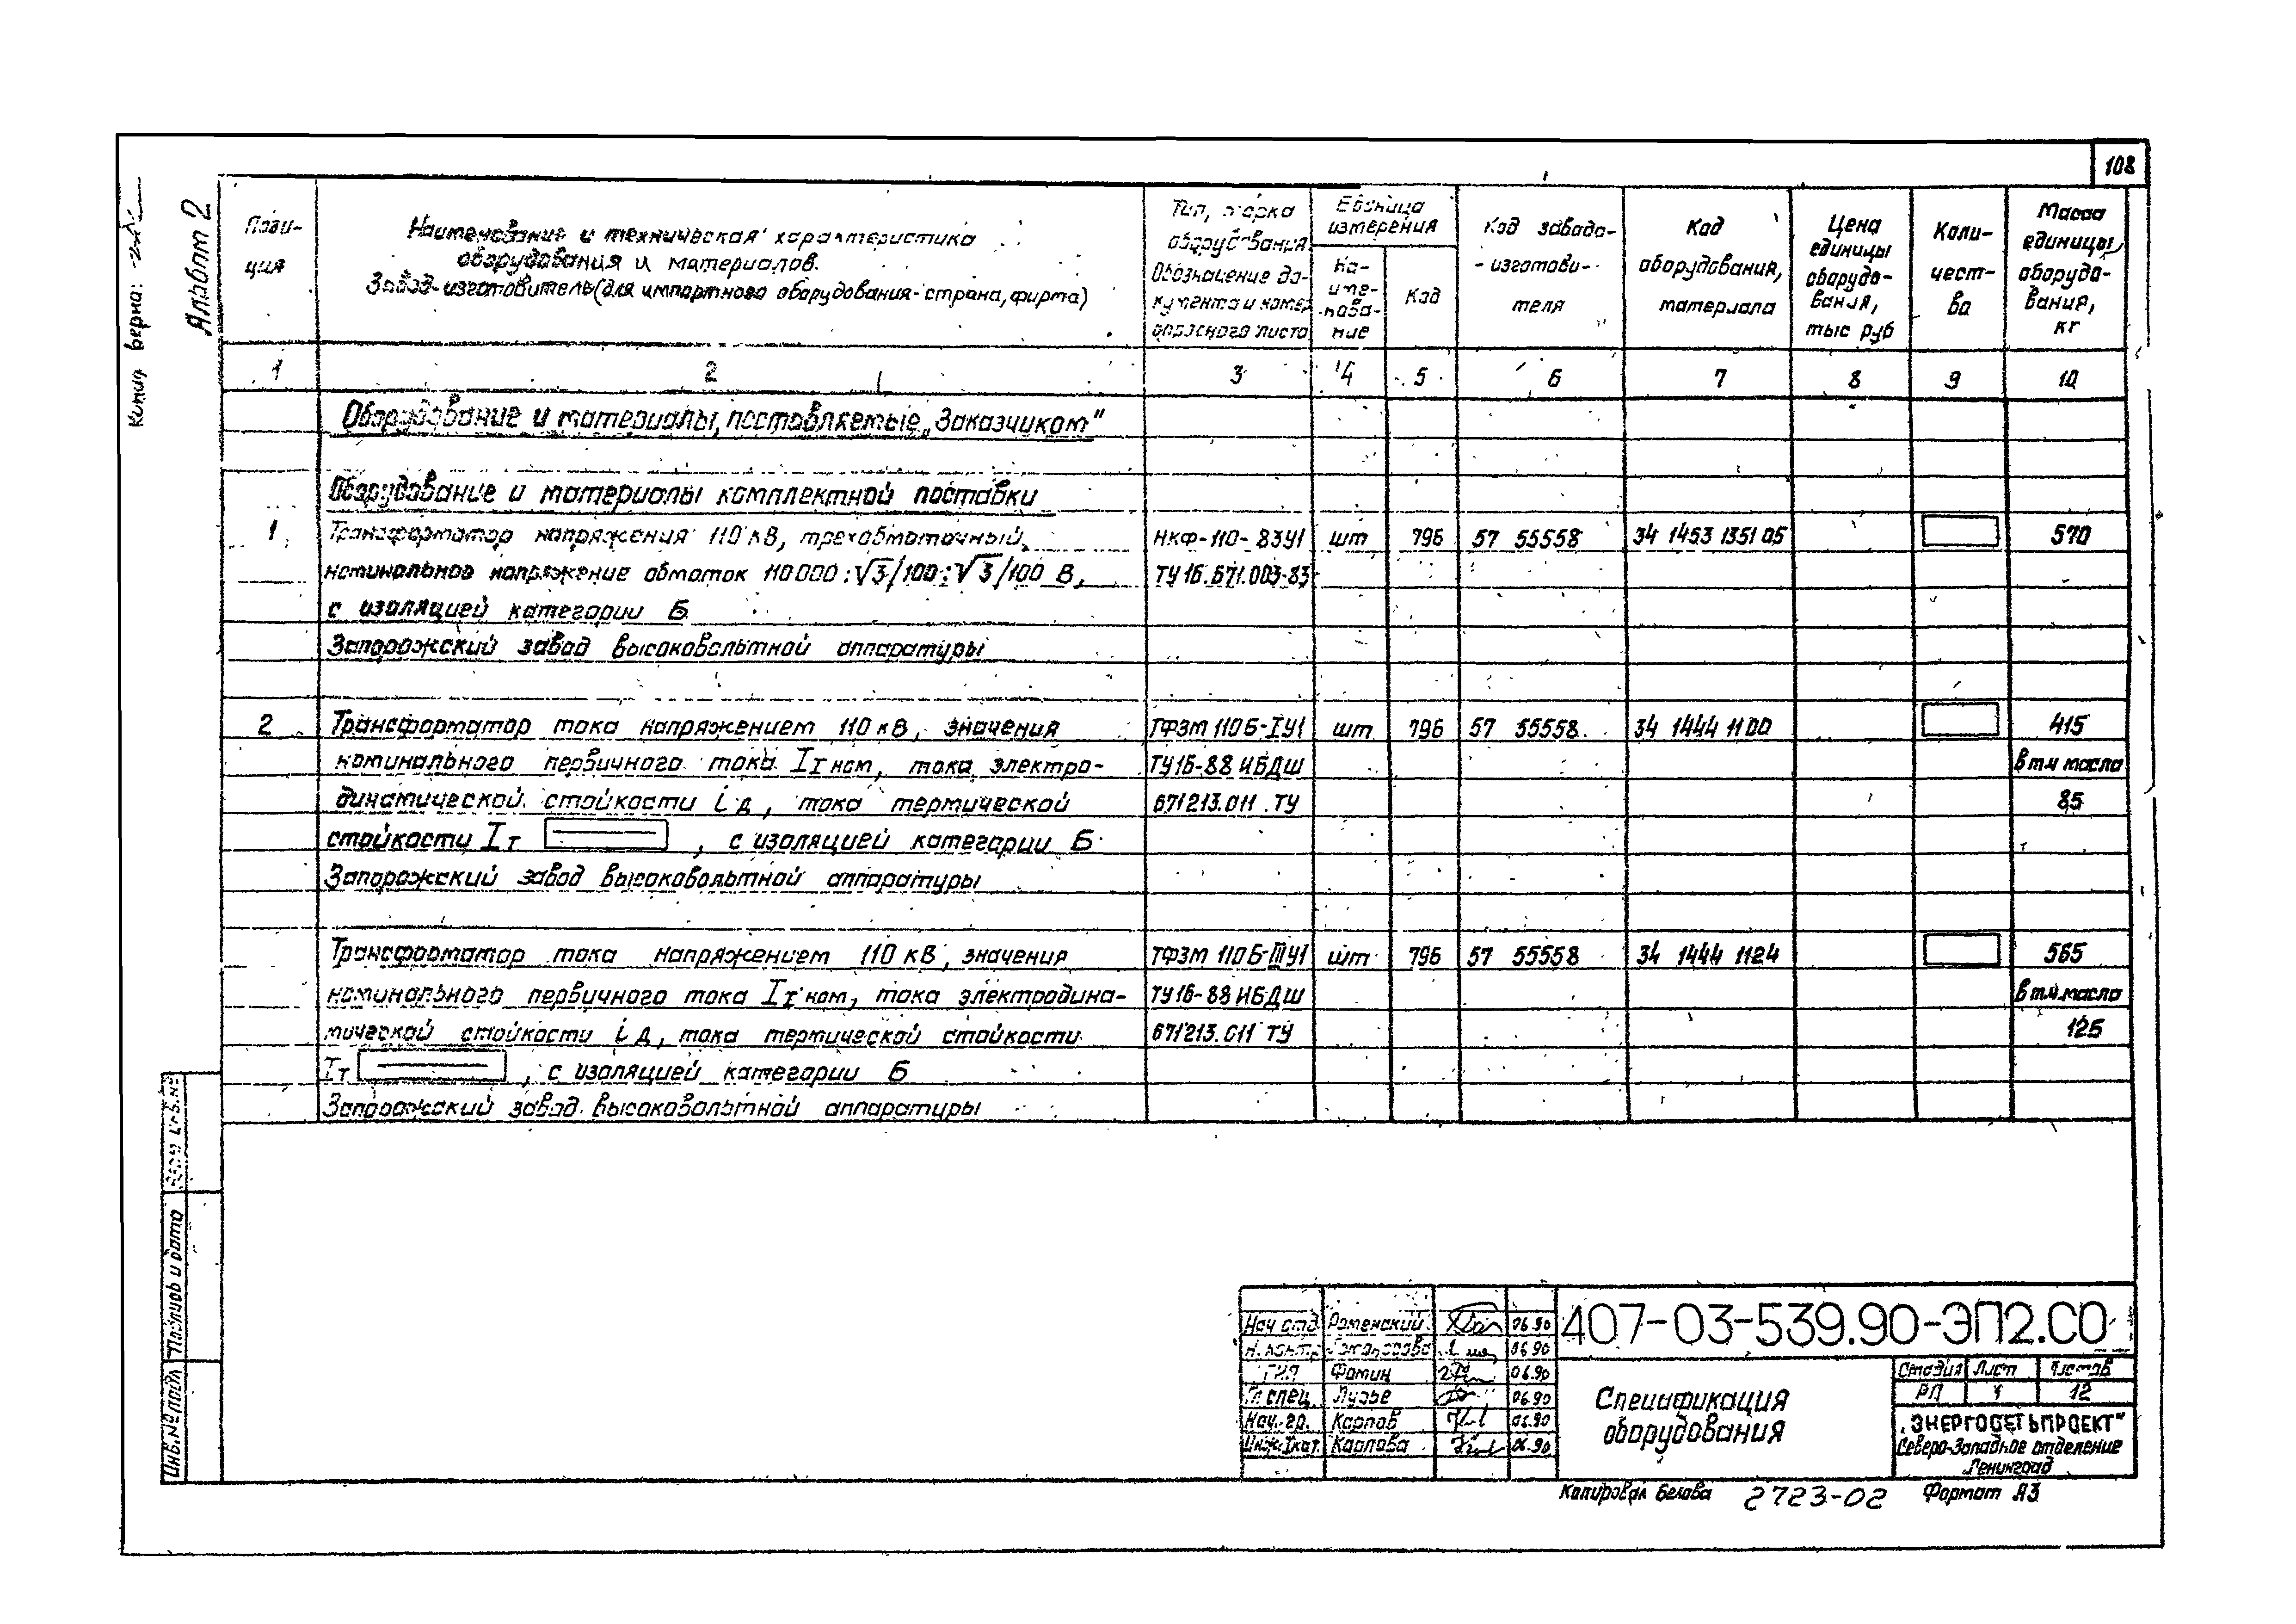 108
Копия верна:
Альбом 2
Пози-
ция
Наименование и техническая характеристика
оборудования и материалов.
Завод-изготовитель (для импортного оборудования - страна, фирма)
Тип, марка
оборудования
Обозначение до-
кумента и номер
опросного листа
Единица
измерения
На-
име-
нова-
ние
Код
Код завода-
-изготови-
теля
Код
оборудования,
материала
Цена
единицы
оборудо-
вания,
тыс руб
Коли-
чест-
во
Масса
единицы
оборудо-
вания,
кг
1 2 3 4 5 6 7 8 9 10
Оборудование и материалы, поставляемые „Заказчиком"
Оборудование и материалы комплектной поставки
1 Трансформатор напряжения 110 кВ, трехобмоточный, НКФ-110-83У1 шт 796 57 55558 34 1453 1351 05 570
номинальное напряжение обмоток 110000:√3/100:√3/100 В, ТУ16.671.003-83
с изоляцией категории Б
Запорожский завод высоковольтной аппаратуры
2 Трансформатор тока напряжением 110 кВ, значения ТФЗМ 110Б-IУ1 шт. 796 57 55558 34 1444 1100 415
номинального первичного тока I₁ ном, тока электро- ТУ16-88 ИБДШ в т.ч масла
динамической стойкости i д, тока термической 671213.011 ТУ 85
стойкости I т , с изоляцией категории Б
Запорожский завод высоковольтной аппаратуры
Трансформатор тока напряжением 110 кВ, значения ТФЗМ 110Б-IIIУ1 шт 796 57 55558 34 1444 1124 565
номинального первичного тока I₁ ном, тока электродина- ТУ16-88 ИБДШ в т.ч.масла
мической стойкости i д, тока термической стойкости 671213.011 ТУ 125
I т , с изоляцией категории Б
Запорожский завод высоковольтной аппаратуры
Взам инв.№
Подпись и дата
Инв.№ подл
Нач отд Роменский 06.90
Н. контр 06.90
ГИП Фомин 06.90
Гл.спец. Лузье 06.90
Нач. гр. Карпов 06.90
Инж.Iкат. Карпова 06.90
407-03-539.90-ЭП2.СО
Спецификация
оборудования
Стадия Лист Листов
РП 1 12
„ЭНЕРГОСЕТЬПРОЕКТ"
Северо-Западное отделение
Ленинград
Копировал Белова 2723-02 Формат А3